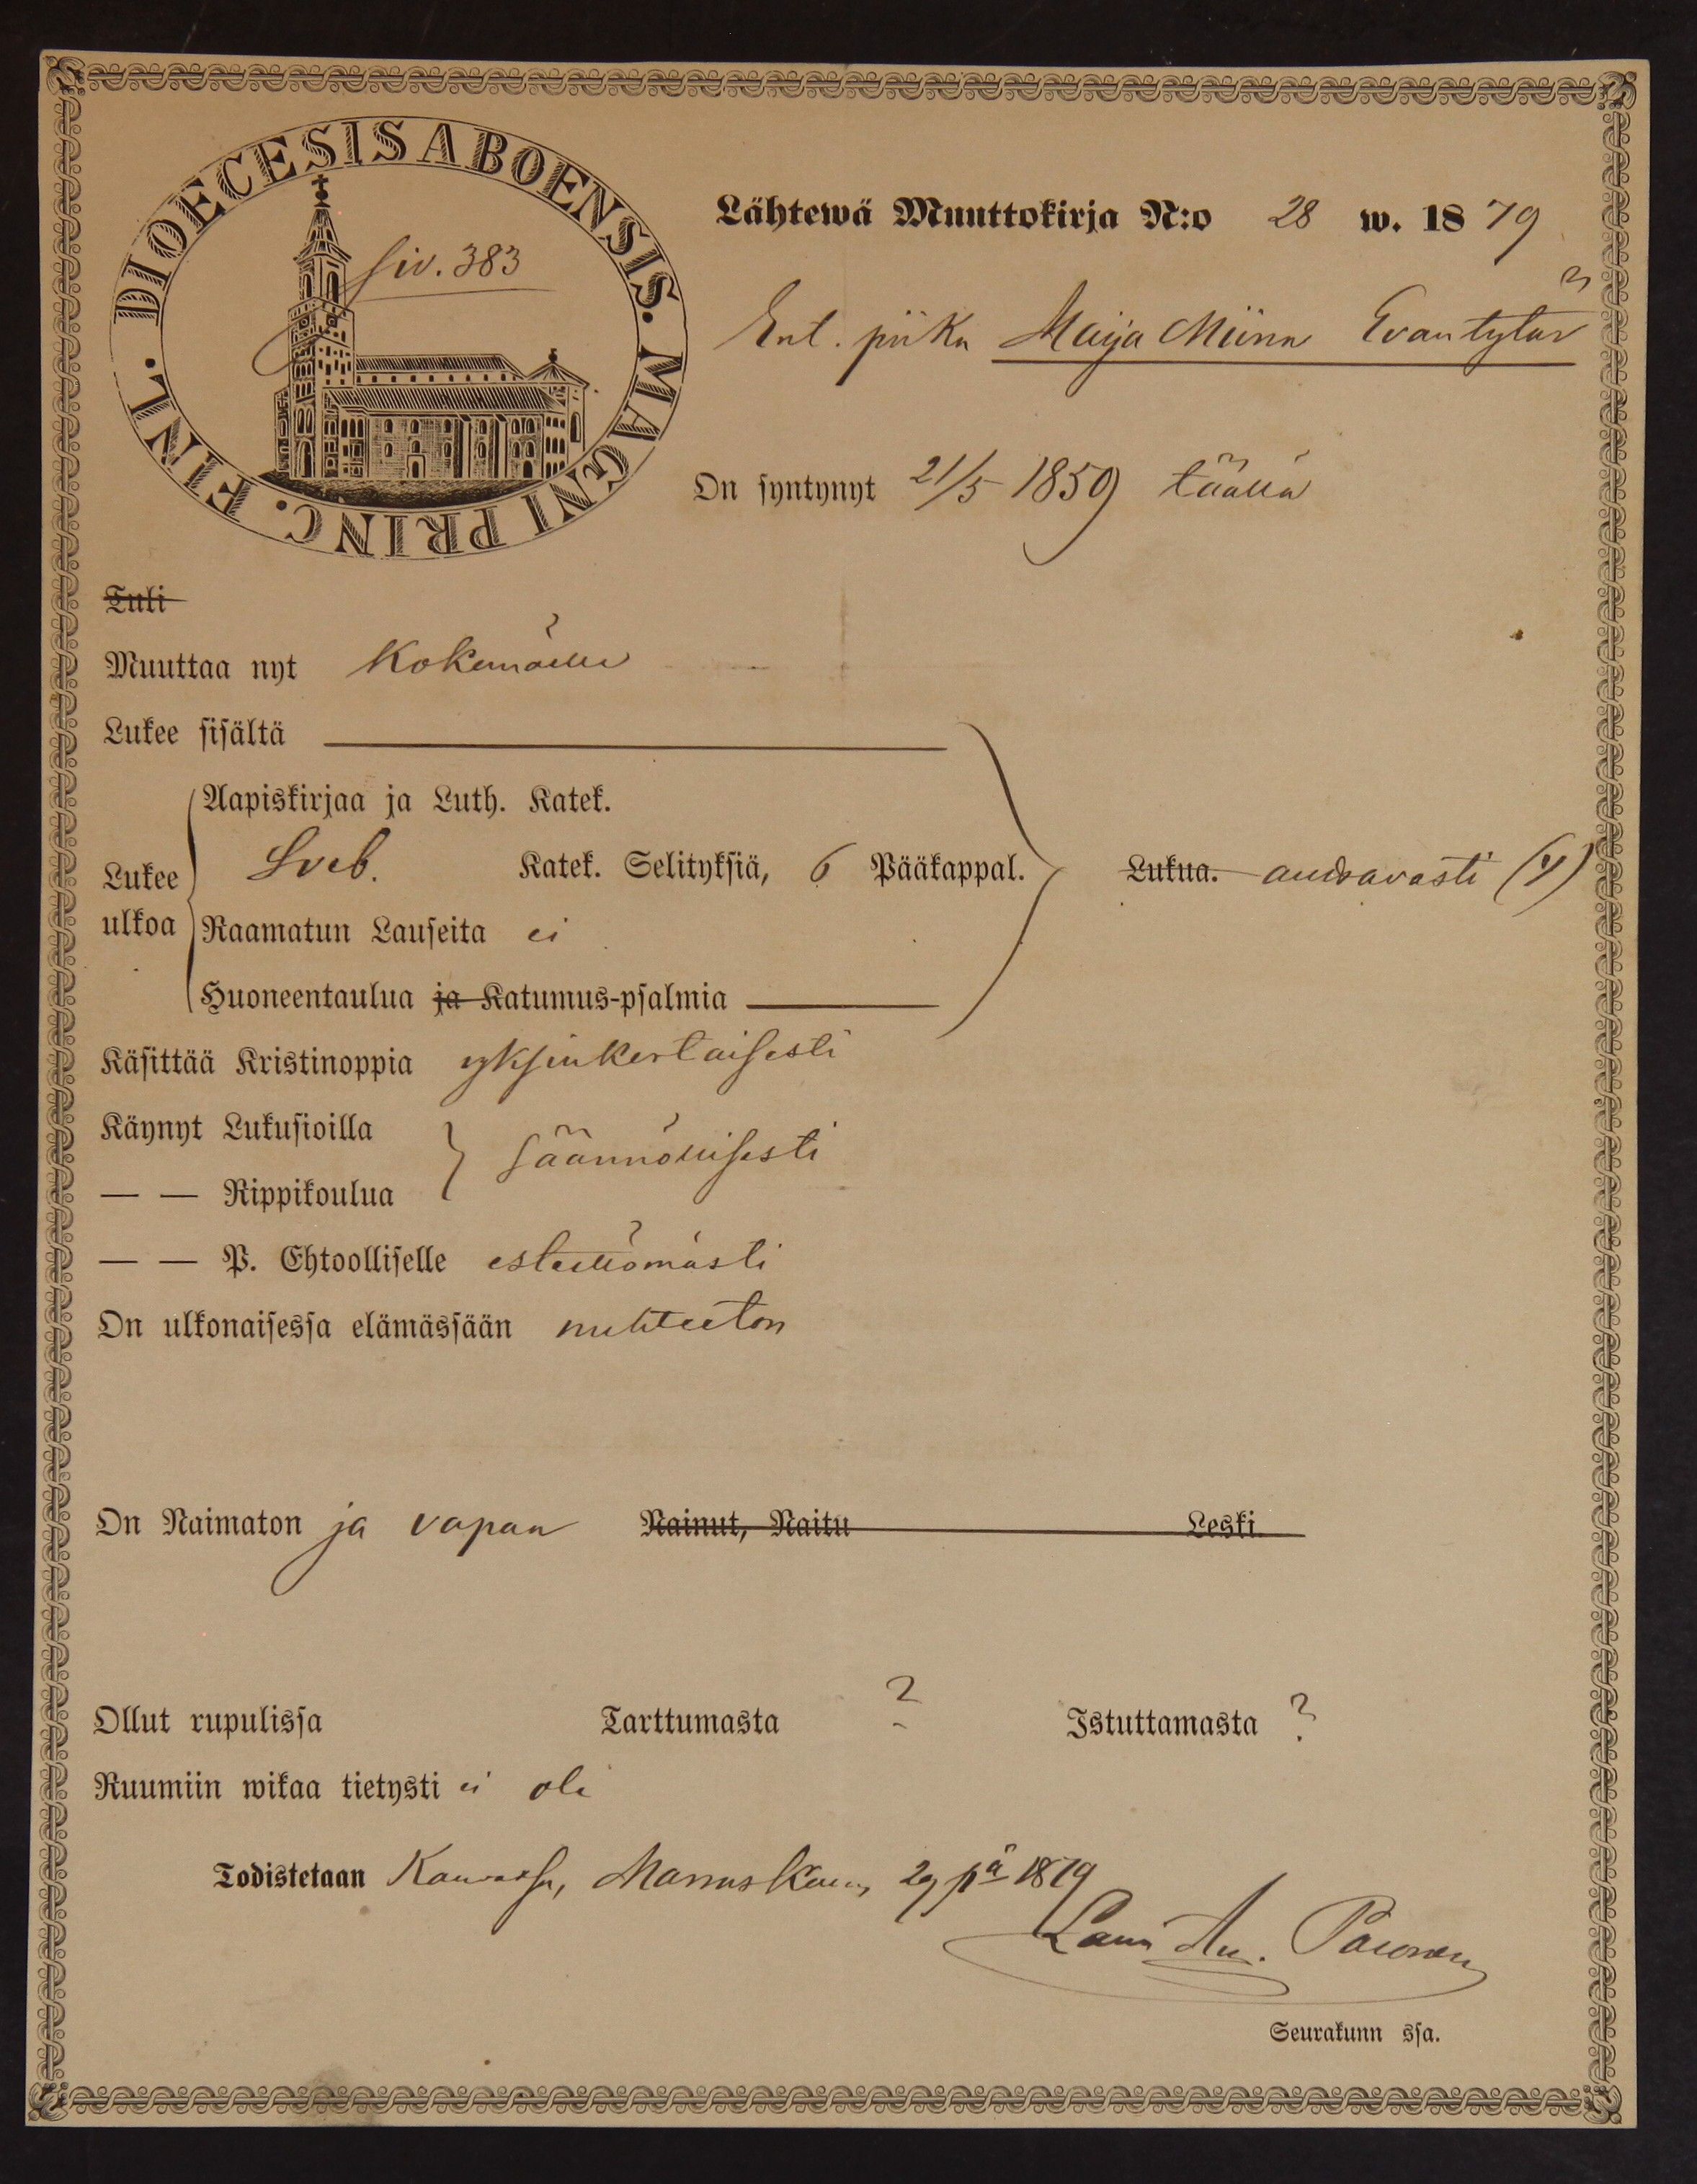 DIOECESIS ABOENSIS. MAGNI PRINC. FINL.
siv. 383
Lähtewä Muuttokirja N:o 28 w. 1879
Ent. piika Maija Miina Evantytär
On syntynyt 21/5 1859 täällä
Tuli
Muuttaa nyt Kokemäelle
Lukee sisältä
Aapiskirjaa ja Luth. Katek.
Lukee ulkoa
Sveb. Katek. Selityksiä, 6 Pääkappal.
Lukua. auttavasti (4)
Raamatun Lauseita ei
Huoneentaulua ja Katumus-psalmia
Käsittää Kristinoppia yksinkertaisesti
Käynyt Lukusioilla
säännöllisesti
— — Rippikoulua
— — P. Ehtoolliselle esteettömästi
On ulkonaisessa elämässään nuhteeton
On Naimaton ja vapaa Nainut, Naitu Leski
Ollut rupulissa Tarttumasta ? Istuttamasta ?
Ruumiin wikaa tietysti ei ole
Todistetaan Marrask. 29 pä 1879
Seurakunn ssa.